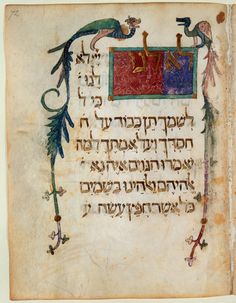 לא לנו
יי לא
לנו
כי ל
לשמך תן כבוד על ח
חסדך ועל אמתך למה
יאמרו הגוים איה נא
אלהיהם ואלהינו בשמים
כל אשר חפץ עשה ע